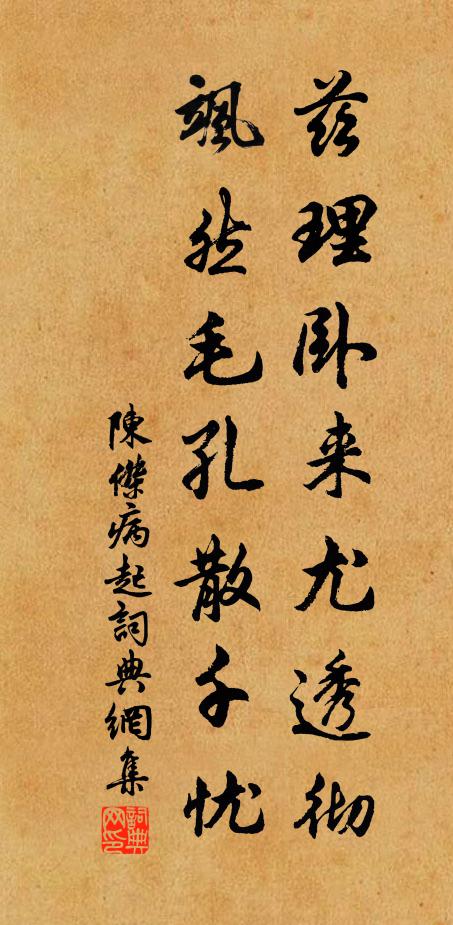 茲理卧来尤透彻
颯然毛孔散千忧
陳傑病起詞典網集
詞典网印